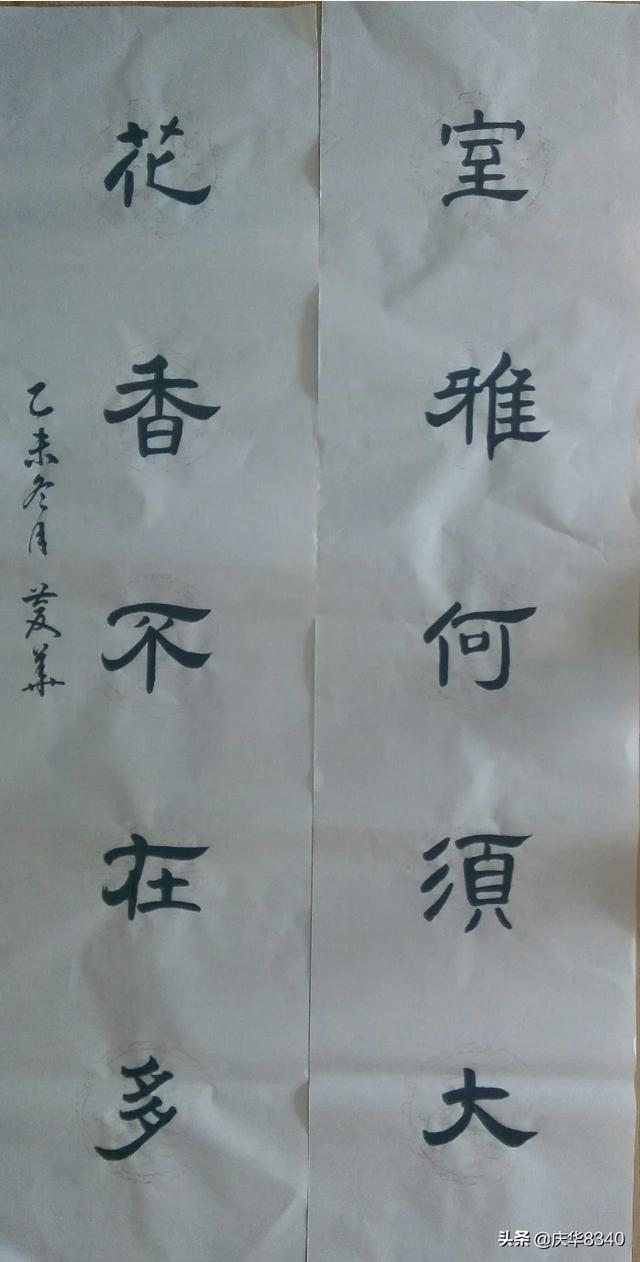 室雅何須大
花香不在多
乙未冬月 庆華
头条 @庆华8340